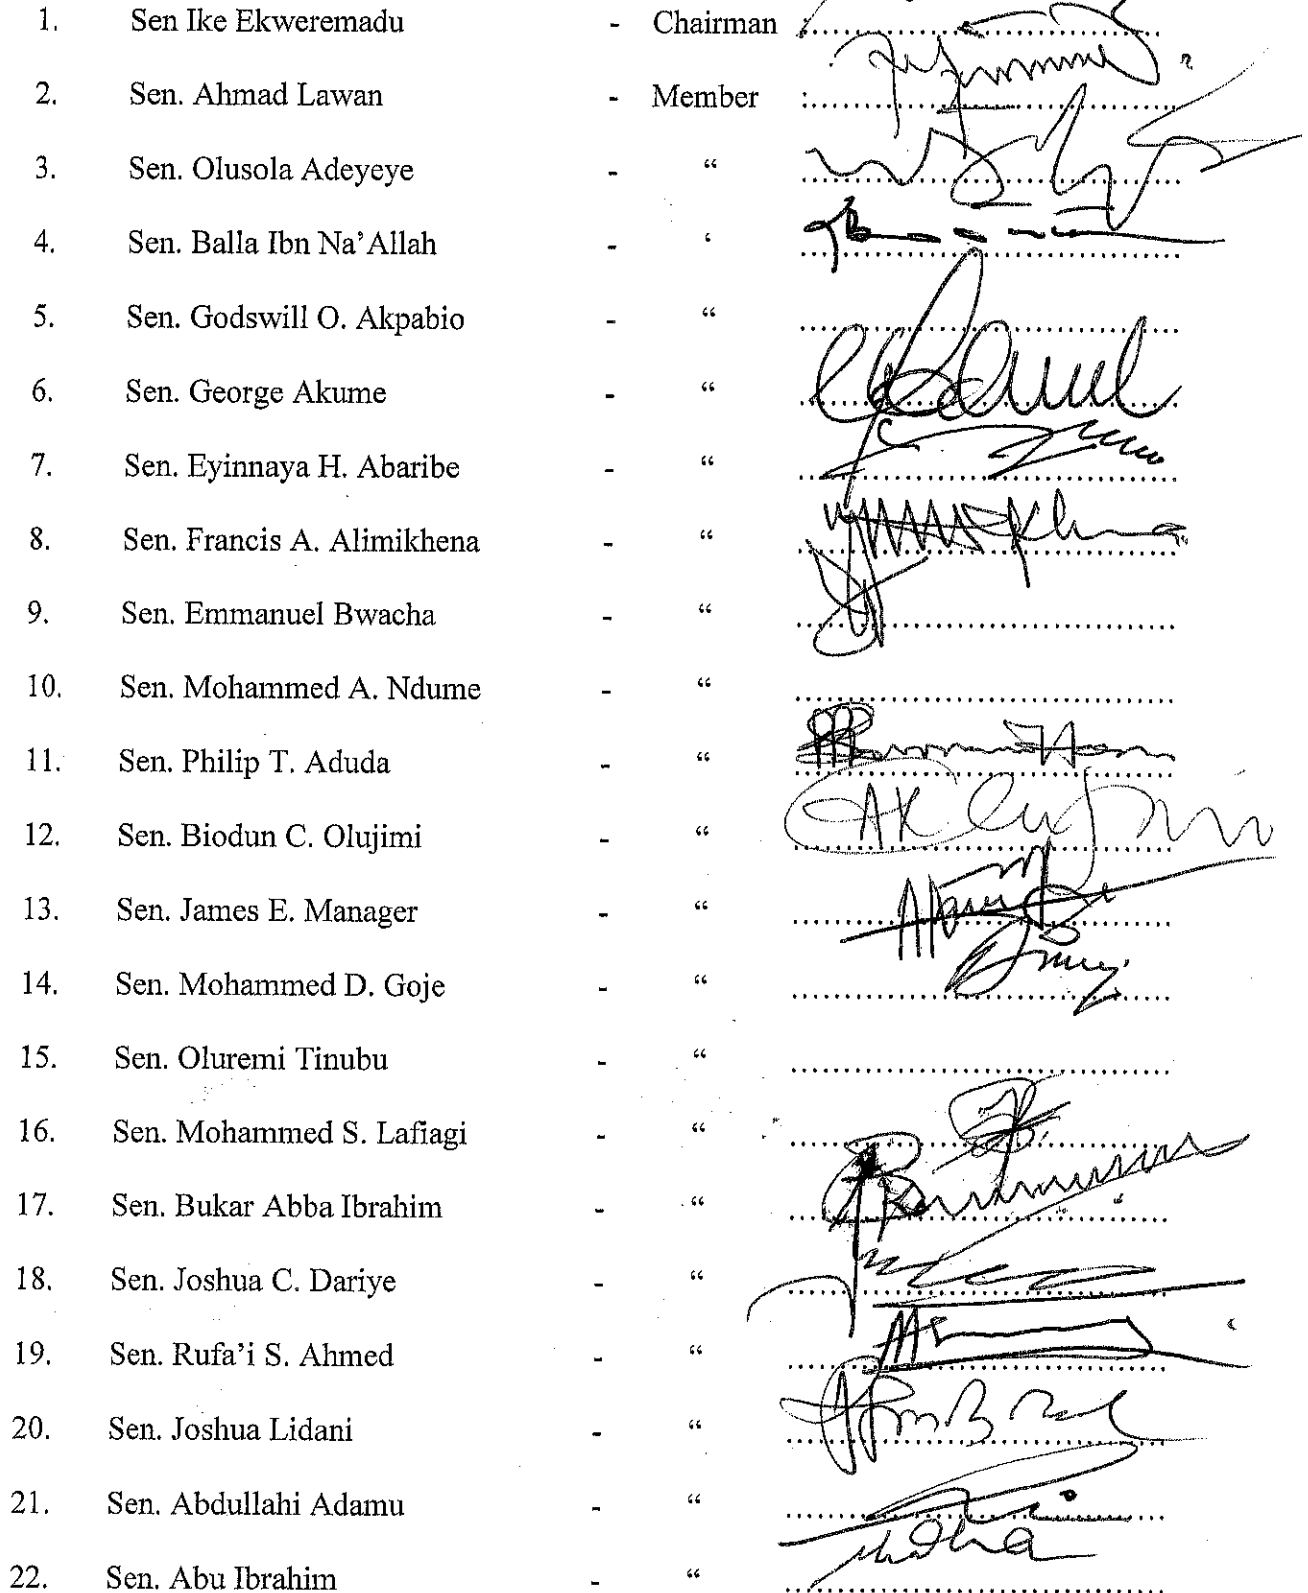 1. Sen Ike Ekweremadu - Chairman :..............................
2. Sen. Ahmad Lawan - Member :..............................
3. Sen. Olusola Adeyeye - “ ..............................
4. Sen. Balla Ibn Na’Allah - ‘ ..............................
5. Sen. Godswill O. Akpabio - “ ..............................
6. Sen. George Akume - “ ..............................
7. Sen. Eyinnaya H. Abaribe - “ ..............................
8. Sen. Francis A. Alimikhena - “ ..............................
9. Sen. Emmanuel Bwacha - “ ..............................
10. Sen. Mohammed A. Ndume - “ ..............................
11. Sen. Philip T. Aduda - “ ..............................
12. Sen. Biodun C. Olujimi - “ ..............................
13. Sen. James E. Manager - “ ..............................
14. Sen. Mohammed D. Goje - “ ..............................
15. Sen. Oluremi Tinubu - “ ..............................
16. Sen. Mohammed S. Lafiagi - “ ..............................
17. Sen. Bukar Abba Ibrahim - “ ..............................
18. Sen. Joshua C. Dariye - “ ..............................
19. Sen. Rufa’i S. Ahmed - “ ..............................
20. Sen. Joshua Lidani - “ ..............................
21. Sen. Abdullahi Adamu - “ ..............................
22. Sen. Abu Ibrahim - “ ..............................